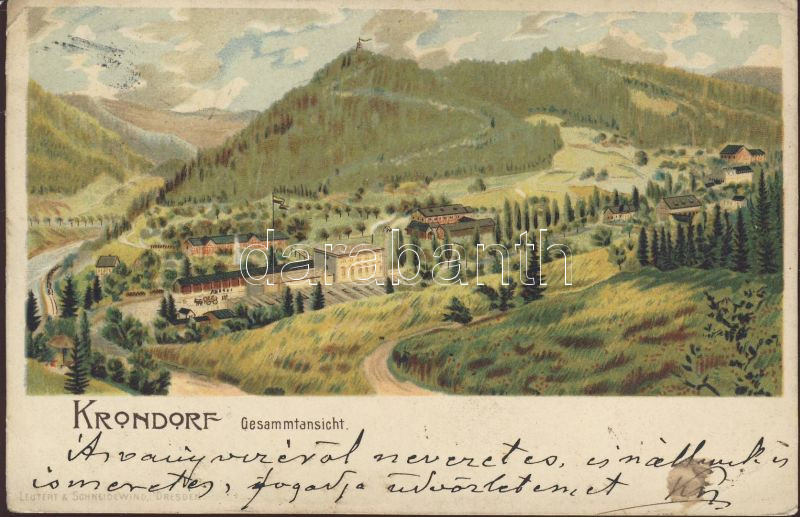 darabanth
KRONDORF Gesammtansicht.
Ásványvizéről nevezetes, is nállunk is
ismeretes, fogadja üdvözletemet
LEUTERT & SCHNEIDEWIND, DRESDEN